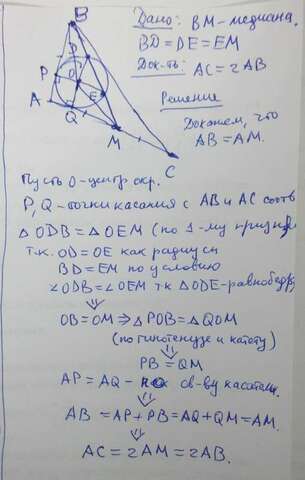 B
P
D
O
A
E
Q
M
C
Дано: BM - медиана,
BD = DE = EM
Док-ть: AC = 2AB
Решение
Докажем, что
AB = AM.
Пусть O - центр окр.
P, Q - точки касания с AB и AC соотв
△ODB = △OEM (по 1-му призна
т.к. OD = OE как радиусы
BD = EM по условию
∠ODB = ∠OEM тк △ODE - равнобедр
⇓
OB = OM ⇒ △POB = △QOM
(по гипотенузе и катету)
⇓
PB = QM
AP = AQ - по св-ву касательн.
⇓
AB = AP + PB = AQ + QM = AM.
⇓
AC = 2AM = 2AB.